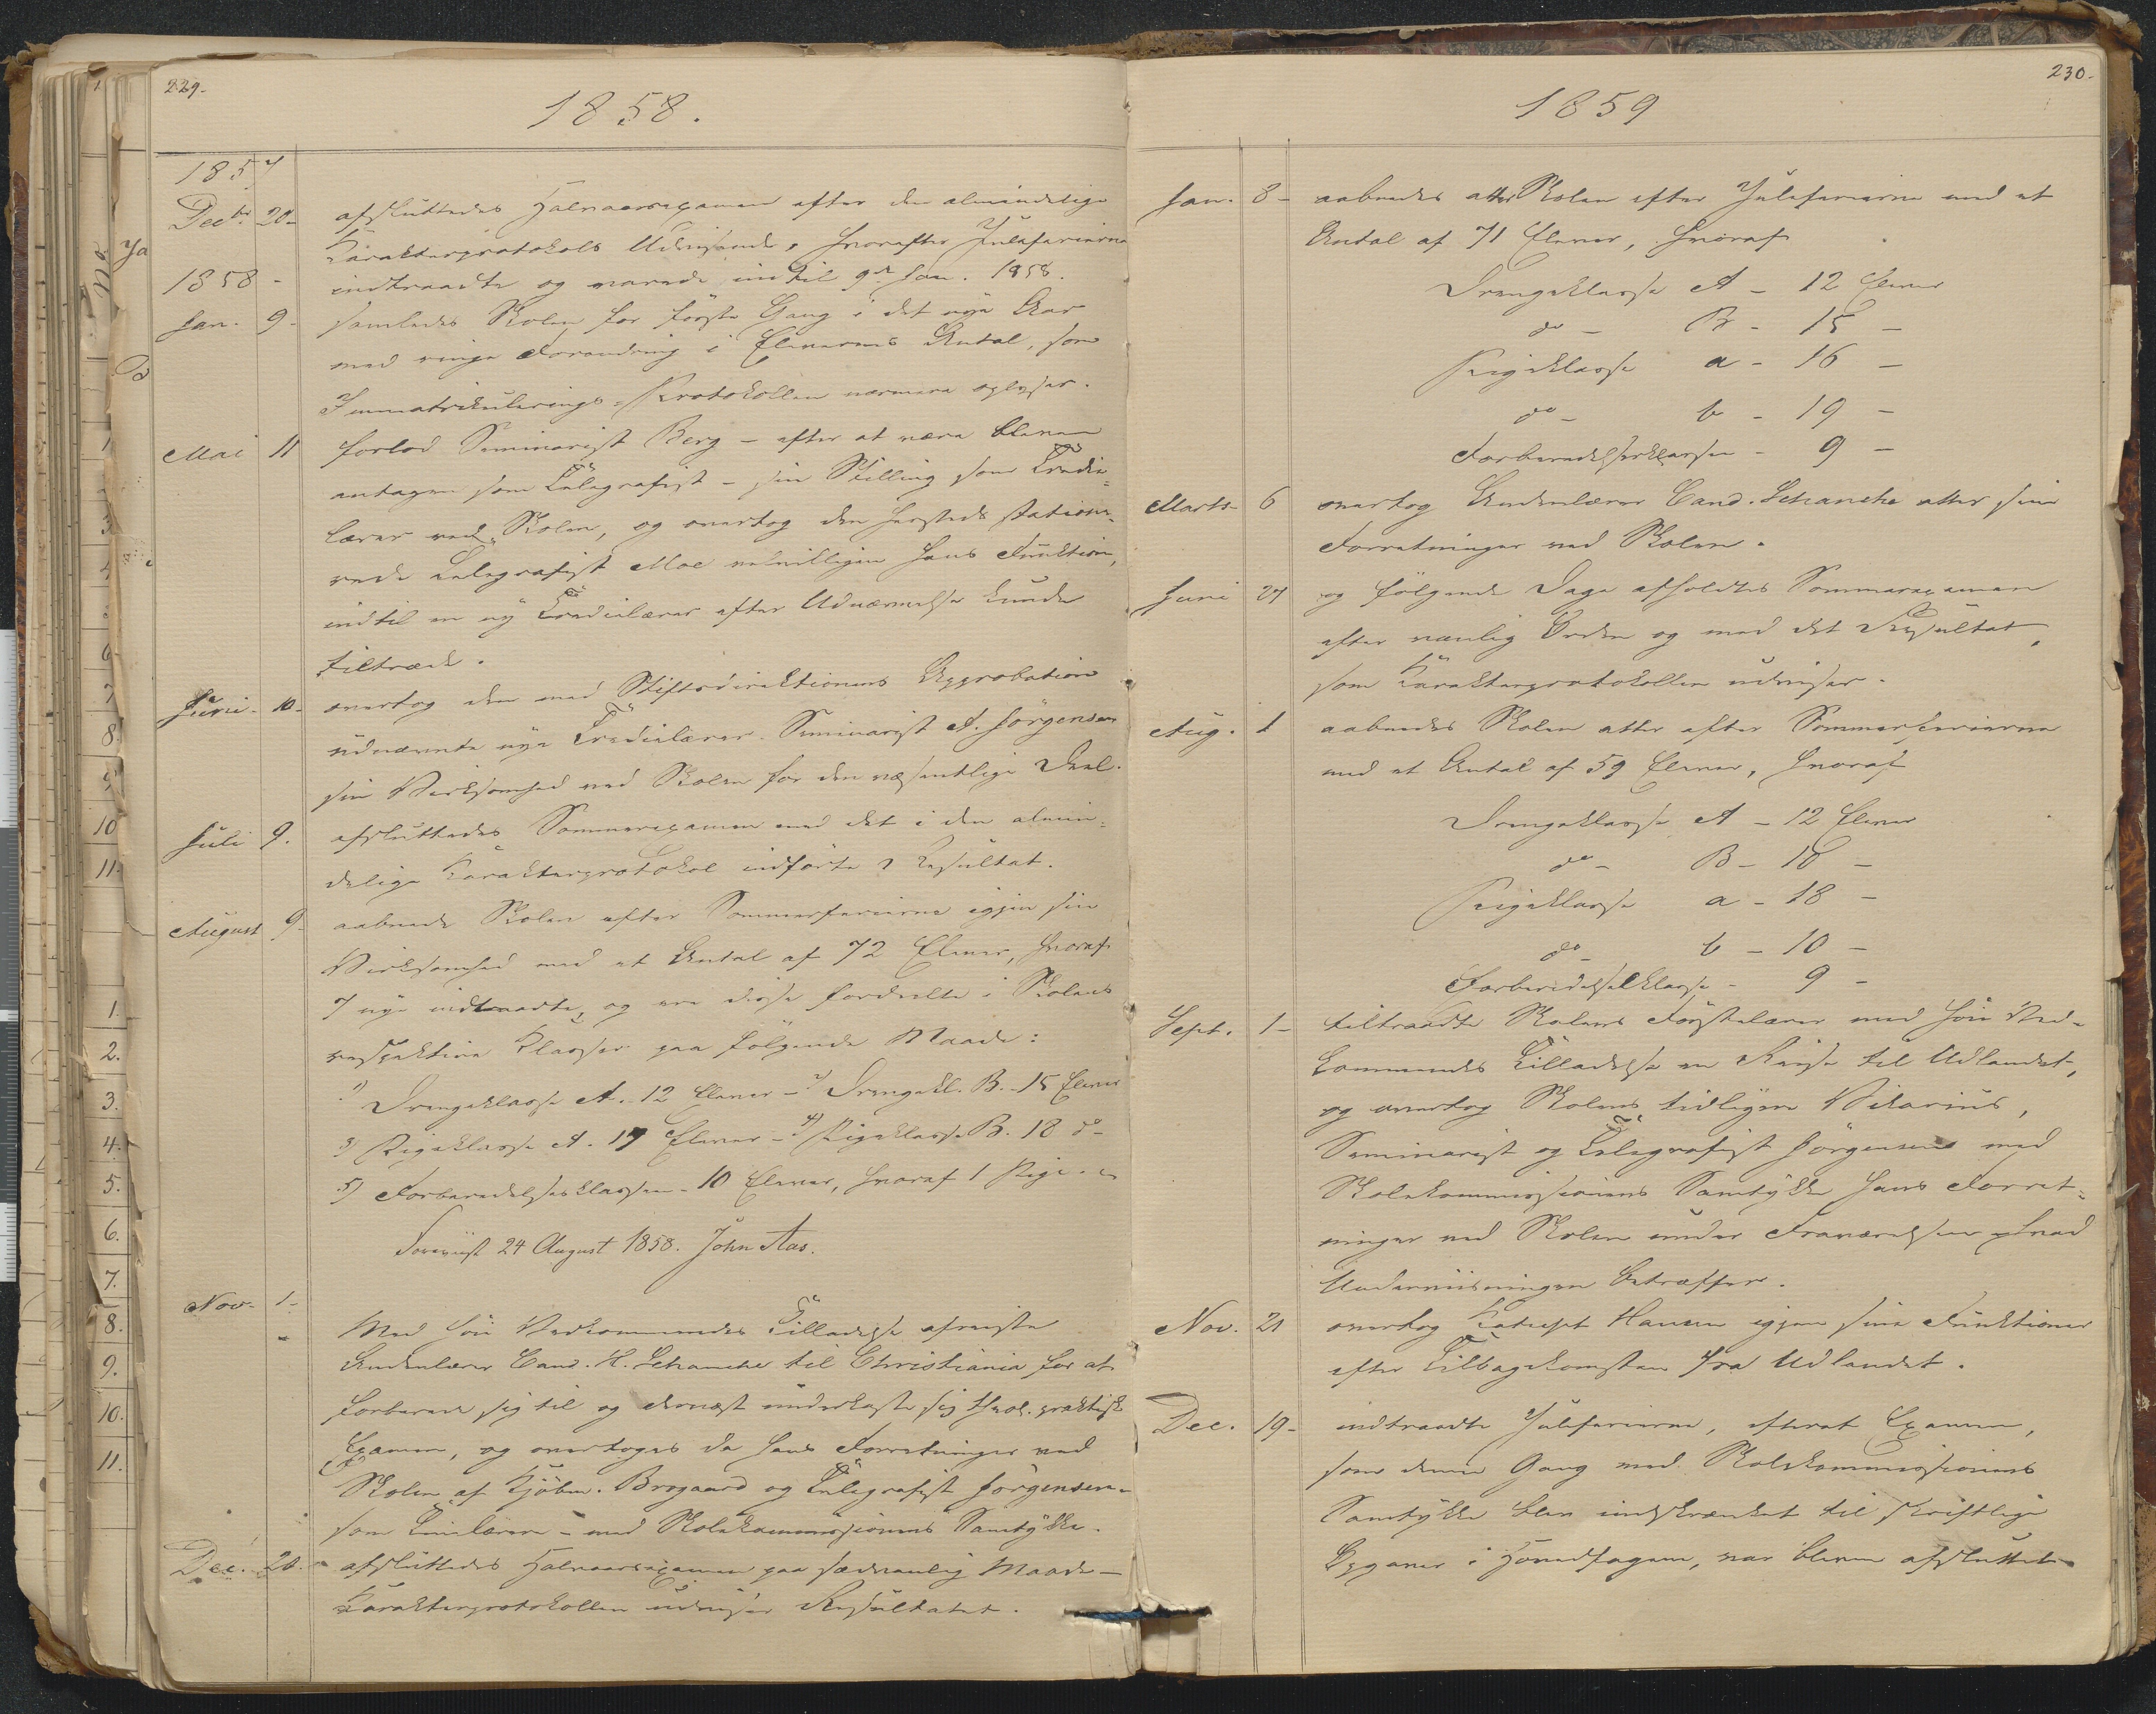 229.
1858.
1857
Decbr. 20- afsluttedes Halvaarsexamen efter den almindelige
Karakterprotokols Udvisende, hvorefter Juleferierne
1858- indtraadte og varede indtil 9de Jan. 1858.
Jan. 9- samledes Skolen for første Gang i det nye Aar
med ringe Forandring i Elevernes Antal, som
Immatrikulerings-Protokollen nærmere oplyser.
Mai 11 forlod Seminarist Berg - efter at være bleven
antagen som Telegrafist - sin Stilling som Tredie-
lærer ved Skolen, og overtog den herstedt statione-
rede Telegrafist Moe velvilligen hans Funktion,
indtil en ny Tredielærer efter Udnævnelse kunde
tiltræde.
Juni- 10- overtog den med Stiftsdirektionens Approbation
udnævnte nye Tredielærer Seminarist A. Jørgensen
sin Virksomhed ved Skolen for den væsentlige Deel.
Juli 9. afsluttedes Sommerexamen med det i den almin-
delige Karakterprotokol indførte Resultat.
August 9- aabnede Skolen efter Sommerferierne igjen sin
Virksomhed med et Antal af 72 Elever, hvoraf
7 nye indtraadte, og ere disse fordeelte i Skolens
respektive Klasser paa følgende Maade:
1) Drengeklasse A. 12 Elever - 2) Drengekl. B. - 15 Elever
3) Pigeklasse A. 17 Elever - 4) Pigeklasse B. 18 do-
5) Forberedelsesklassen - 10 Elever, hvoraf 1 Pige.
Foreviist 24 August 1858. John Aas.
Nov- 1-
Med høie Vedkommendes Tilladelse afreiste
Andenlærer Cand. H. Schanche til Christiania for at
forberede sig til og dernæst underkaste sig theol. praktisk
Examen, og overtoges da hans Forretninger ved
Skolen af Kjøbm. Brogaard og Telegrafist Jørgensen-
som Timelærere - med Skolekommissionens Samtykke.
Dec. 20. afsluttedes Halvaarsexamen paa sædvanlig Maade-
Karakterprotokollen udviser Resultatet.
230.
1859
Jan. 8- aabnedes atter Skolen efter Juleferierne med et
Antal af 71 Elever, hvoraf
Drengeklasse A - 12 Elever
do - B - 15 -
Pigeklasse a - 16 -
do - b - 19 -
Forberedelsesklassen - 9 -
Marts- 6 overtog Andenlærer Cand. Schanche atter sine
Forretninger ved Skolen.
Juni 27 og følgende Dage afholdtes Sommerexamen
efter vanlig Orden og med det Resultat,
som Karakterprotokollen udviser.
Aug. 1 aabnedes Skolen atter efter Sommerferierne
med et Antal af 59 Elever, hvoraf
Drengeklasse A - 12 Elever
do - B - 10 -
Pigeklasse a - 18 -
do - b - 10 -
Forberedelsesklasse - 9 -
Sept. 1- tiltraadte Skolens Førstelærer med høie Ved-
kommendes Tilladelse en Reise til Udlandet,
og overtog Skolens tidligere Vikarius,
Seminarist og Telegrafist Jørgensen med
Skolekommissionens Samtykke hans Forret-
ninger ved Skolen under Fraværelsen hvad
Underviisningen betræffer.
Nov. 21 overtog Katechet Hansen igjen sine Funktioner
efter Tilbagekomsten fra Udlandet.
Dec. 19- indtraadte Juleferierne, efterat Examen,
som denne Gang med Skolekommissionens
Samtykke blev indskrænket til skriftlige
Opgaver i Hovedfagene, var bleven afsluttet.